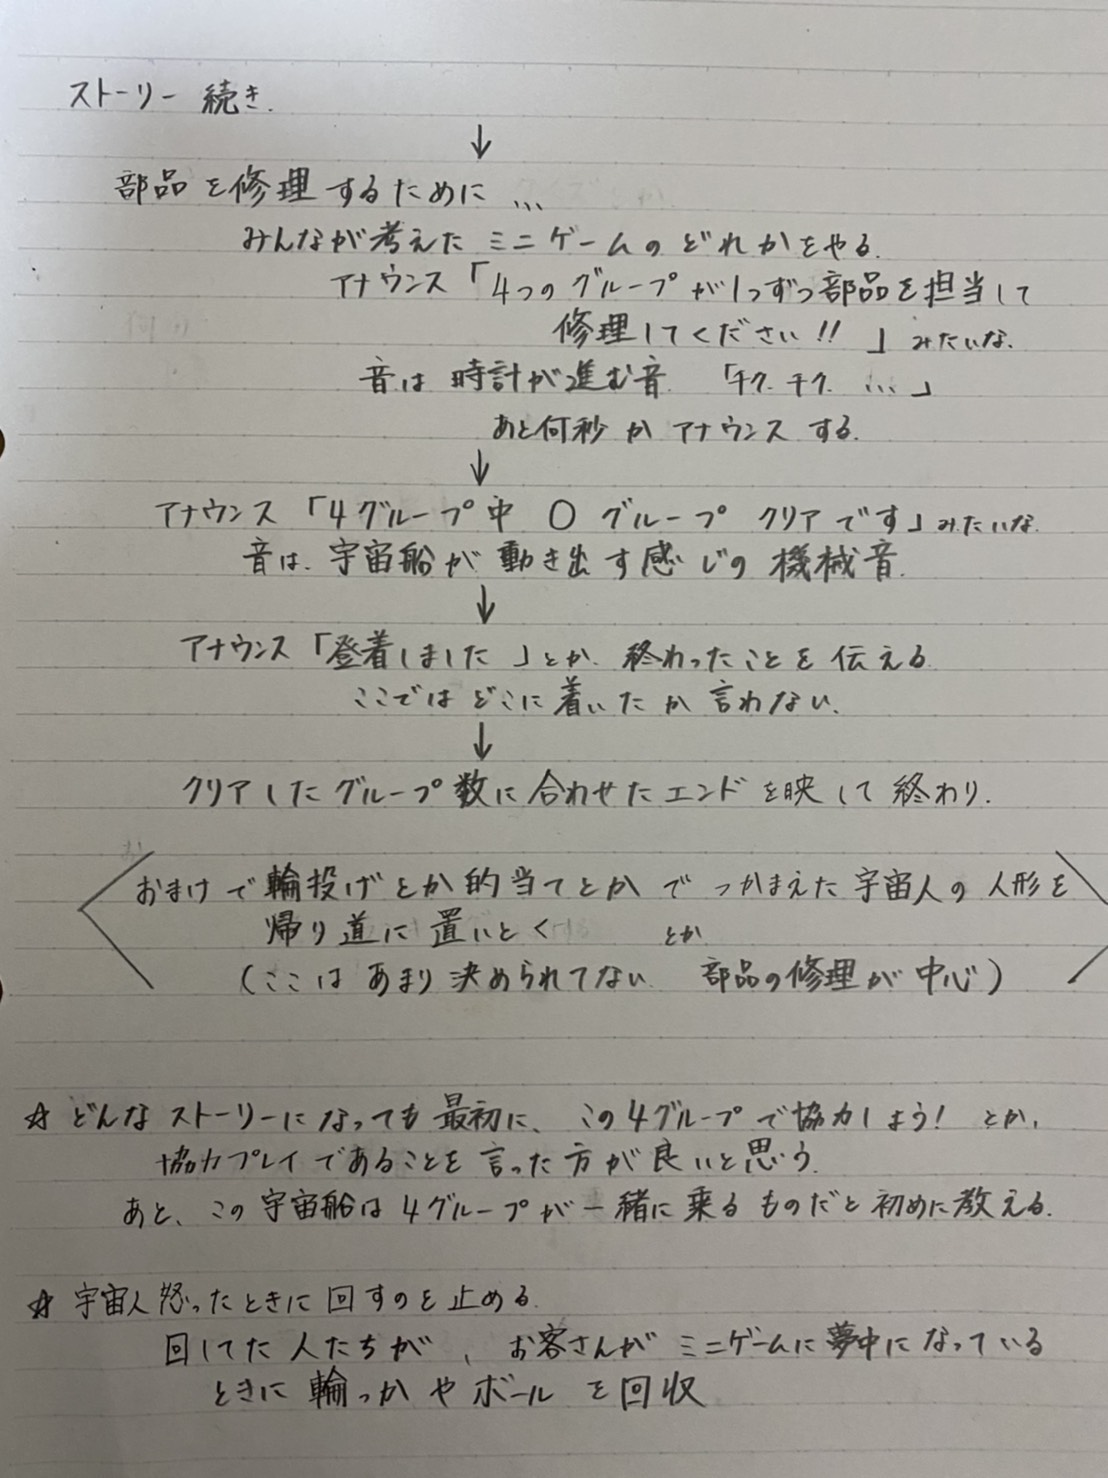 ストーリー 続き.
↓
部品を修理するために...
みんなが考えたミニゲームのどれかをやる.
アナウンス「4つのグループが1つずつ部品を担当して
修理してください!!」みたいな.
音は時計が進む音.「チク.チク...」
あと何秒かアナウンスする.
↓
アナウンス「4グループ中 ○グループ クリアです」みたいな.
音は.宇宙船が動き出す感じの機械音.
↓
アナウンス「登着しました」とか.終わったことを伝える.
ここではどこに着いたか言わない.
↓
クリアしたグループ数に合わせたエンドを映して終わり.
おまけで輪投げとか的当てとかでつかまえた宇宙人の人形を
帰り道に置いとく とか
(ここはあまり決められてない.部品の修理が中心)
☆どんなストーリーになっても最初に、この4グループで協力しよう!とか,
協力プレイであることを言った方が良いと思う.
あと、この宇宙船は4グループが一緒に乗るものだと初めに教える.
☆宇宙人怒ったときに回すのを止める.
回してた人たちが、お客さんがミニゲームに夢中になっている
ときに輪っかやボールを回収